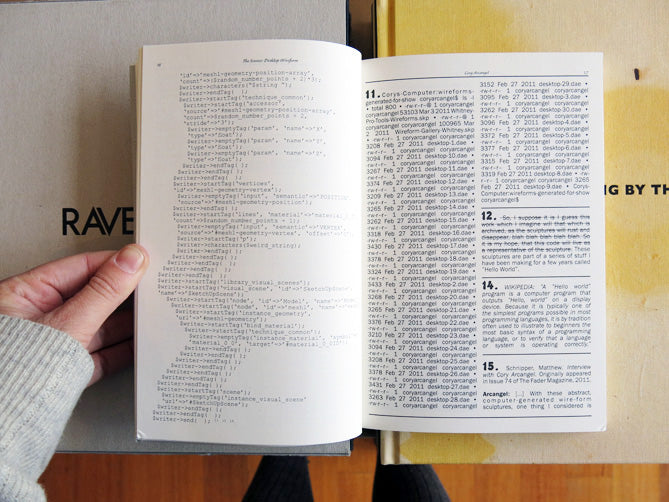 The Source: Desktop Wireform
'id'=>'mesh1-geometry-position-array',
'count'=>($random_number_points + 2)*3);
$writer->characters("$string ");
$writer->endTag( );
$writer->startTag('technique_common');
$writer->startTag('accessor',
'source'=>'#mesh1-geometry-position-array',
'count'=>$random_number_points + 2,
'stride'=>'3');
$writer->emptyTag('param', 'name'=>'X',
'type'=>'float');
$writer->emptyTag('param', 'name'=>'Y',
'type'=>'float');
$writer->emptyTag('param', 'name'=>'Z',
'type'=>'float');
$writer->endTag( );
$writer->endTag( );
$writer->endTag( );
$writer->startTag('vertices',
'id'=>'mesh1-geometry-vertex');
$writer->emptyTag('input', 'semantic'=>'POSITION',
'source'=>'#mesh1-geometry-position');
$writer->endTag( );
$writer->startTag('lines',
'count'=>$random_number_points + 1);
$writer->emptyTag('input', 'semantic'=>'VERTEX',
'source'=>'#mesh1-geometry-vertex',
$writer->startTag('p');
$writer->characters($weird_string);
$writer->endTag( );
$writer->endTag( );
$writer->endTag( );
$writer->endTag( );
$writer->endTag( );
$writer->startTag('library_visual_scenes');
$writer->startTag('visual_scene', 'id'=>'SketchUpScene',
'name'=>'SketchUpScene');
$writer->startTag('node', 'id'=>'Model',
$writer->startTag('node', 'id'=>'mesh1',
$writer->startTag('instance_geometry',
'url'=>'#mesh1-geometry');
$writer->startTag('bind_material');
$writer->startTag('technique_common');
$writer->emptyTag('instance_material',
$writer->endTag( );
$writer->endTag( );
$writer->endTag( );
$writer->endTag( );
$writer->endTag( );
$writer->endTag( );
$writer->endTag( );
$writer->startTag('scene');
$writer->emptyTag('instance_visual_scene'
'url'=>'#SketchUpScene');
$writer->endTag( );
$writer->endTag( );
$writer->end( );
Cory Arcangel 17
11. Corys-Computer:wireforms-
generated-for-show coryarcangel$ ls -l
• total 800 • -rw-r--r--@ 1 coryarcangel
coryarcangel 53103 Mar 3 2011 Whitney
Pro-Tools-Wireforms.skp • -rw-r--r--@ 1
coryarcangel coryarcangel 100965 Mar
2 2011 Wireform-Gallery-Whitney.skp
• -rw-r--r-- 1 coryarcangel coryarcangel
3208 Feb 27 2011 desktop-1.dae •
-rw-r--r-- 1 coryarcangel coryarcangel
3094 Feb 27 2011 desktop-10.dae •
-rw-r--r-- 1 coryarcangel coryarcangel
3267 Feb 27 2011 desktop-11.dae •
-rw-r--r-- 1 coryarcangel coryarcangel
3374 Feb 27 2011 desktop-12.dae •
-rw-r--r-- 1 coryarcangel coryarcangel
3209 Feb 27 2011 desktop-13.dae •
-rw-r--r-- 1 coryarcangel coryarcangel
3204 Feb 27 2011 desktop-14.dae •
-rw-r--r-- 1 coryarcangel coryarcangel
3267 Feb 27 2011 desktop-15.dae •
-rw-r--r-- 1 coryarcangel coryarcangel
3317 Feb 27 2011 desktop-16.dae •
-rw-r--r-- 1 coryarcangel coryarcangel
3430 Feb 27 2011 desktop-17.dae •
-rw-r--r-- 1 coryarcangel coryarcangel
3378 Feb 27 2011 desktop-18.dae •
-rw-r--r-- 1 coryarcangel coryarcangel
3324 Feb 27 2011 desktop-19.dae •
-rw-r--r-- 1 coryarcangel coryarcangel
3318 Feb 27 2011 desktop-2.dae •
-rw-r--r-- 1 coryarcangel coryarcangel
3267 Feb 27 2011 desktop-20.dae •
-rw-r--r-- 1 coryarcangel coryarcangel
3430 Feb 27 2011 desktop-21.dae •
-rw-r--r-- 1 coryarcangel coryarcangel
3434 Feb 27 2011 desktop-22.dae •
-rw-r--r-- 1 coryarcangel coryarcangel
3090 Feb 27 2011 desktop-23.dae •
-rw-r--r-- 1 coryarcangel coryarcangel
3090 Feb 27 2011 desktop-24.dae •
-rw-r--r-- 1 coryarcangel coryarcangel
3208 Feb 27 2011 desktop-25.dae •
-rw-r--r-- 1 coryarcangel coryarcangel
3378 Feb 27 2011 desktop-26.dae •
-rw-r--r-- 1 coryarcangel coryarcangel
3431 Feb 27 2011 desktop-27.dae •
-rw-r--r-- 1 coryarcangel coryarcangel
3263 Feb 27 2011 desktop-28.dae •
-rw-r--r-- 1 coryarcangel coryarcangel
3152 Feb 27 2011 desktop-29.dae •
-rw-r--r-- 1 coryarcangel coryarcangel
3095 Feb 27 2011 desktop-3.dae •
-rw-r--r-- 1 coryarcangel coryarcangel
3262 Feb 27 2011 desktop-30.dae •
-rw-r--r-- 1 coryarcangel coryarcangel
3096 Feb 27 2011 desktop-4.dae •
-rw-r--r-- 1 coryarcangel coryarcangel
3372 Feb 27 2011 desktop-5.dae •
-rw-r--r-- 1 coryarcangel coryarcangel
3377 Feb 27 2011 desktop-6.dae •
-rw-r--r-- 1 coryarcangel coryarcangel
3315 Feb 27 2011 desktop-7.dae •
-rw-r--r-- 1 coryarcangel coryarcangel
3320 Feb 27 2011 desktop-8.dae •
-rw-r--r-- 1 coryarcangel coryarcangel 3265
Feb 27 2011 desktop-9.dae • Corys-
Computer:wireforms-generated-for-show
coryarcangel$
12. So, I suppose it is I guess this
work which I imagine will that which is
archived, as the sculptures will rust and
disappear, blah blah blah blah blah. So
it is my hope, that this code will live as
a representative of the sculpture. These
sculptures are part of a series of stuff I
have been making for a few years called
"Hello World".
14. WIKIPEDIA: "A "Hello world"
program is a computer program that
outputs "Hello, world" on a display
device. Because it is typically one of
the simplest programs possible in most
programming languages, it is by tradition
often used to illustrate to beginners the
most basic syntax of a programming
language, or to verify that a language
or system is operating correctly."
15. Schnipper, Matthew. Interview
with Cory Arcangel. Originally appeared
in Issue 74 of The Fader Magazine, 2011.
Arcangel: [...] With these abstract,
computer-generated wire-form
sculptures, one thing I considered is
RAVE
NG BY TH